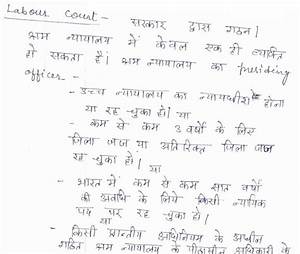 Labour Court - सरकार द्वारा गठन।
श्रम न्यायालय में केवल एक ही व्यक्ति
हो सकता है। श्रम न्यायालय का presiding
officer -
- उच्च न्यायालय का न्यायधीश होना
या रह चुका हो।
या
- कम से कम 3 वर्षों के लिए
जिला जज या अतिरिक्त जिला जज
रह चुका हो। या
- भारत में कम से कम सात वर्षों
की अवधि के लिये किसी न्यायिक
पद पर रह चुका हो।
या
- किसी प्रान्तीय अधिनियम के अधीन
गठित श्रम न्यायालय के पीठासीन अधिकारी के